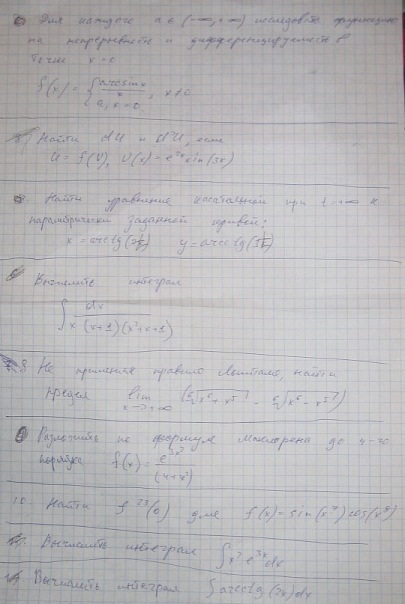 Для каждого a ∈ (-∞, +∞) исследовать функцию
на непрерывность и дифференцируемость в
точке x = 0
f(x) = { arcsin x / x, x ≠ 0
a, x = 0
Найти dU и d²U, если
U = f(V), V(x) = e^{2x} sin(3x)
Найти уравнение касательной при t → ∞ к
параметрически заданной кривой:
x = arcctg y = arcctg
Вычислить интеграл
∫ dx / x (x+1)(x²+x+1)
8 Не применяя правило Лопиталя, найти
предел lim x→+∞ (⁶√x⁶+x⁵ - ⁶√x⁶-x⁵)
Разложить по формуле Маклорена до 4-го
порядка f(x) = / (4+x²)
10. Найти для f(x) = sin(x⁷) cos
Вычислить интеграл ∫ x² e^{3x} dx
Вычислить интеграл ∫ arcctg (2x) dx